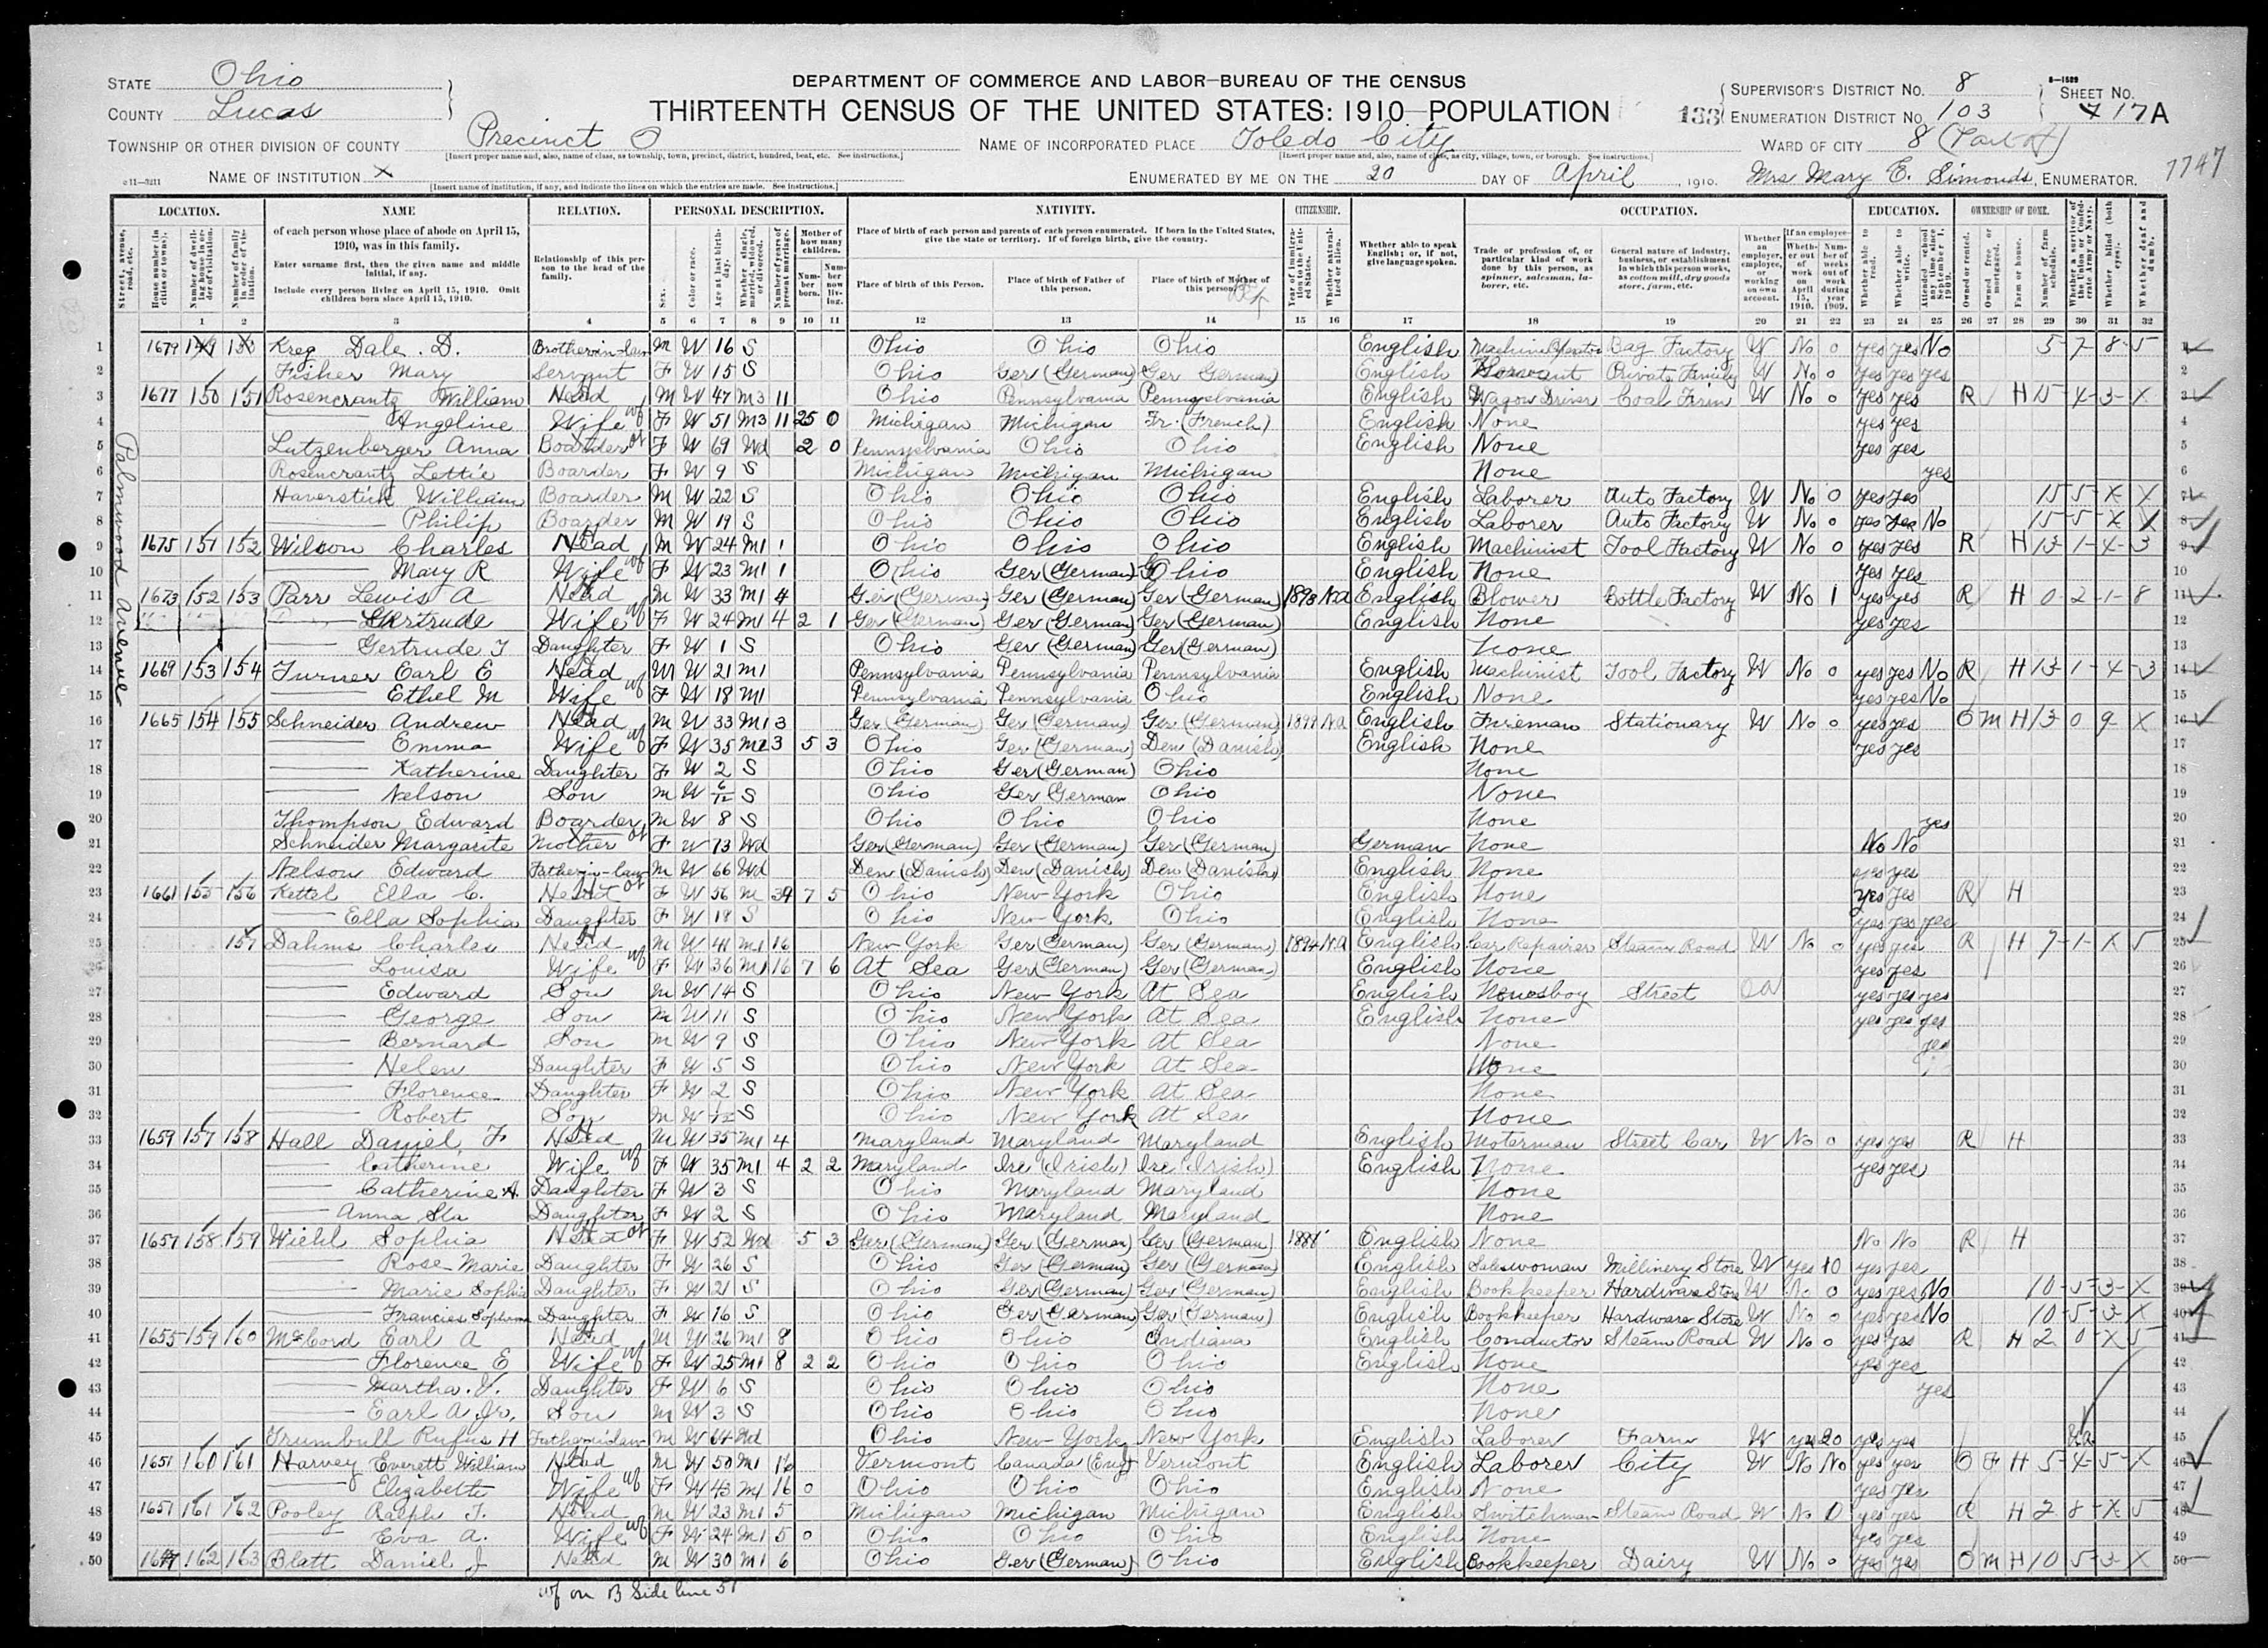 STATE Ohio
COUNTY Lucas
TOWNSHIP OR OTHER DIVISION OF COUNTY Precinct O
[Insert proper name and, also, name of class, as township, town, precinct, district, hundred, beat, etc. See instructions.]
NAME OF INSTITUTION X
[Insert name of institution, if any, and indicate the lines on which the entries are made. See instructions.]
DEPARTMENT OF COMMERCE AND LABOR—BUREAU OF THE CENSUS
THIRTEENTH CENSUS OF THE UNITED STATES: 1910—POPULATION
NAME OF INCORPORATED PLACE Toledo City
[Insert proper name and, also, name of class, as city, village, town, or borough. See instructions.]
ENUMERATED BY ME ON THE 20 DAY OF April, 1910. Mrs Mary E. Simonds, ENUMERATOR.
133
SUPERVISOR'S DISTRICT NO. 8
ENUMERATION DISTRICT NO. 103
SHEET NO. 17 A
WARD OF CITY 8 (Part of)
7747
LOCATION. NAME RELATION. PERSONAL DESCRIPTION. NATIVITY. CITIZENSHIP. OCCUPATION. EDUCATION. OWNERSHIP OF HOME.
Palmwood Avenue
1 1679 Kreg Dale. D. Brother-in-law M W 16 S Ohio Ohio Ohio English Bag Factory W No 0 yes yes No 5-7-8-5
2 Fisher Mary Servant F W 15 S Ohio Ger (German) Ger German) English Private Family W No 0 yes yes yes
3 1677 150 151 Rosencrantz William Head M W 47 M3 11 Ohio Pennsylvania Pennsylvania English Wagon Driver Coal Firm W No 0 yes yes R H 15-4-3-X
4 Angeline Wife F W 51 M3 11 25 0 Michigan Michigan Fr. (French) English None yes yes
5 Lutzenberger Anna Boarder F W 69 Wd 2 0 Pennsylvania Ohio Ohio English None yes yes
6 Rosencrantz Lettie Boarder F W 9 S Michigan Michigan Michigan None yes
7 Haverstick William Boarder M W 22 S Ohio Ohio Ohio English Laborer Auto Factory W No 0 yes yes 15-5-X X
8 Philip Boarder M W 19 S Ohio Ohio Ohio English Laborer Auto Factory W No 0 yes yes No 15-5-X X
9 1675 151 152 Wilson Charles Head M W 24 M1 1 Ohio Ohio Ohio English Machinist Tool Factory W No 0 yes yes R H 13-1-4-3
10 Mary R Wife F W 23 M1 1 Ohio Ger (German) Ohio English None yes yes
11 1673 152 153 Parr Lewis A Head M W 33 M1 4 Ger (German) Ger (German) Ger (German) 1893 Na English Blower Bottle Factory W No 1 yes yes R H 0-2-1-8
12 Gertrude Wife F W 24 M1 4 2 1 Ger (German) Ger (German) Ger (German) English None yes yes
13 Gertrude F Daughter F W 1 S Ohio Ger (German) Ger (German) None
14 1669 153 154 Turner Earl E Head M W 21 M1 Pennsylvania Pennsylvania Pennsylvania English Machinist Tool Factory W No 0 yes yes No R H 13-1-4-3
15 Ethel M Wife F W 18 M1 Pennsylvania Pennsylvania Ohio English None yes yes No
16 1665 154 155 Schneider Andrew Head M W 33 M1 3 Ger (German) Ger (German) Ger (German) 1899 Na English Fireman Stationary W No 0 yes yes O M H 13-0-9-X
17 Emma Wife F W 35 M2 3 5 3 Ohio Ger (German) Den (Danish) English None yes yes
18 Katherine Daughter F W 2 S Ohio Ger (German) Ohio None
19 Nelson Son M W 6/12 S Ohio Ger German Ohio None
20 Thompson Edward Boarder M W 8 S Ohio Ohio Ohio None yes
21 Schneider Margarite Mother F W 73 Wd Ger (German) Ger (German) Ger (German) German None No No
22 Nelson Edward Father-in-law M W 66 Wd Den (Danish) Den (Danish) Den (Danish) English None yes yes
23 1661 155 156 Kettel Ella C. Head F W 56 M 39 7 5 Ohio New York Ohio English None yes yes R H
24 Ella Sophia Daughter F W 18 S Ohio New York Ohio English None yes yes yes
25 157 Dahms Charles Head M W 41 M1 16 New York Ger (German) Ger (German) 1894 Na English Car Repairer Steam Road W No 0 yes yes R H 7-1-X-5
26 Louisa Wife F W 36 M1 16 7 6 At Sea Ger (German) Ger (German) English None yes yes
27 Edward Son M W 14 S Ohio New York At Sea English Newsboy Street OA yes yes yes
28 George Son M W 11 S Ohio New York At Sea English None yes yes yes
29 Bernard Son M W 9 S Ohio New York At Sea None yes
30 Helen Daughter F W 5 S Ohio New York At Sea None
31 Florence Daughter F W 2 S Ohio New York At Sea None
32 Robert Son M W 1/12 S Ohio New York At Sea None
33 1659 157 158 Hall Daniel F Head M W 35 M1 4 Maryland Maryland Maryland English Moterman Street Car W No 0 yes yes R H
34 Catherine Wife F W 35 M1 4 2 2 Maryland Ire (Irish) Ire (Irish) English None yes yes
35 Catherine A. Daughter F W 3 S Ohio Maryland Maryland None
36 Anna Daughter F W 2 S Ohio Maryland Maryland None
37 1657 158 159 Wiehl Sophia Head F W 52 Wd 5 3 Ger (German) Ger (German) Ger (German) 1881 English None No No R H
38 Rose Marie Daughter F W 26 S Ohio Ger (German) Ger (German) English Saleswoman Millinery Store W yes 10 yes yes
39 Marie Sophia Daughter F W 21 S Ohio Ger (German) Ger (German) English Bookkeeper Hardware Store W No 0 yes yes No 10-5-3-X
40 Francies Daughter F W 16 S Ohio Ger (German) Ger (German) English Bookkeeper Hardware Store W No 0 yes yes No 10-5-3-X
41 1655 159 160 McCord Earl A Head M W 26 M1 8 Ohio Ohio Indiana English Conductor Steam Road W No 0 yes yes R H 2 0-X 5
42 Florence E Wife F W 25 M1 8 2 2 Ohio Ohio Ohio English None yes yes
43 Martha. V. Daughter F W 6 S Ohio Ohio Ohio None yes
44 Earl A Jr. Son M W 3 S Ohio Ohio Ohio None
45 Trumbull Rufus H Father-in-law M W 64 Wd Ohio New York New York English Laborer Farm W yes 20 yes yes
46 1651 160 161 Harvey Everett William Head M W 50 M1 16 Vermont Canada (Eng) Vermont English Laborer City W No No yes yes O F H 5-4-5-X
47 Elizabeth Wife F W 43 M1 16 0 Ohio Ohio Ohio English None yes yes
48 1651 161 162 Pooley Ralph T. Head M W 23 M1 5 Michigan Michigan Michigan English Switchman Steam Road W No 0 yes yes R H 2 8-X 5
49 Eva A. Wife F W 24 M1 5 0 Ohio Ohio Ohio English None yes yes
50 162 163 Blatt Daniel J Head M W 30 M1 6 Ohio Ger (German) Ohio English Bookkeeper Dairy W No 0 yes yes O M H 10 5-3-X
wf on B Side line 51